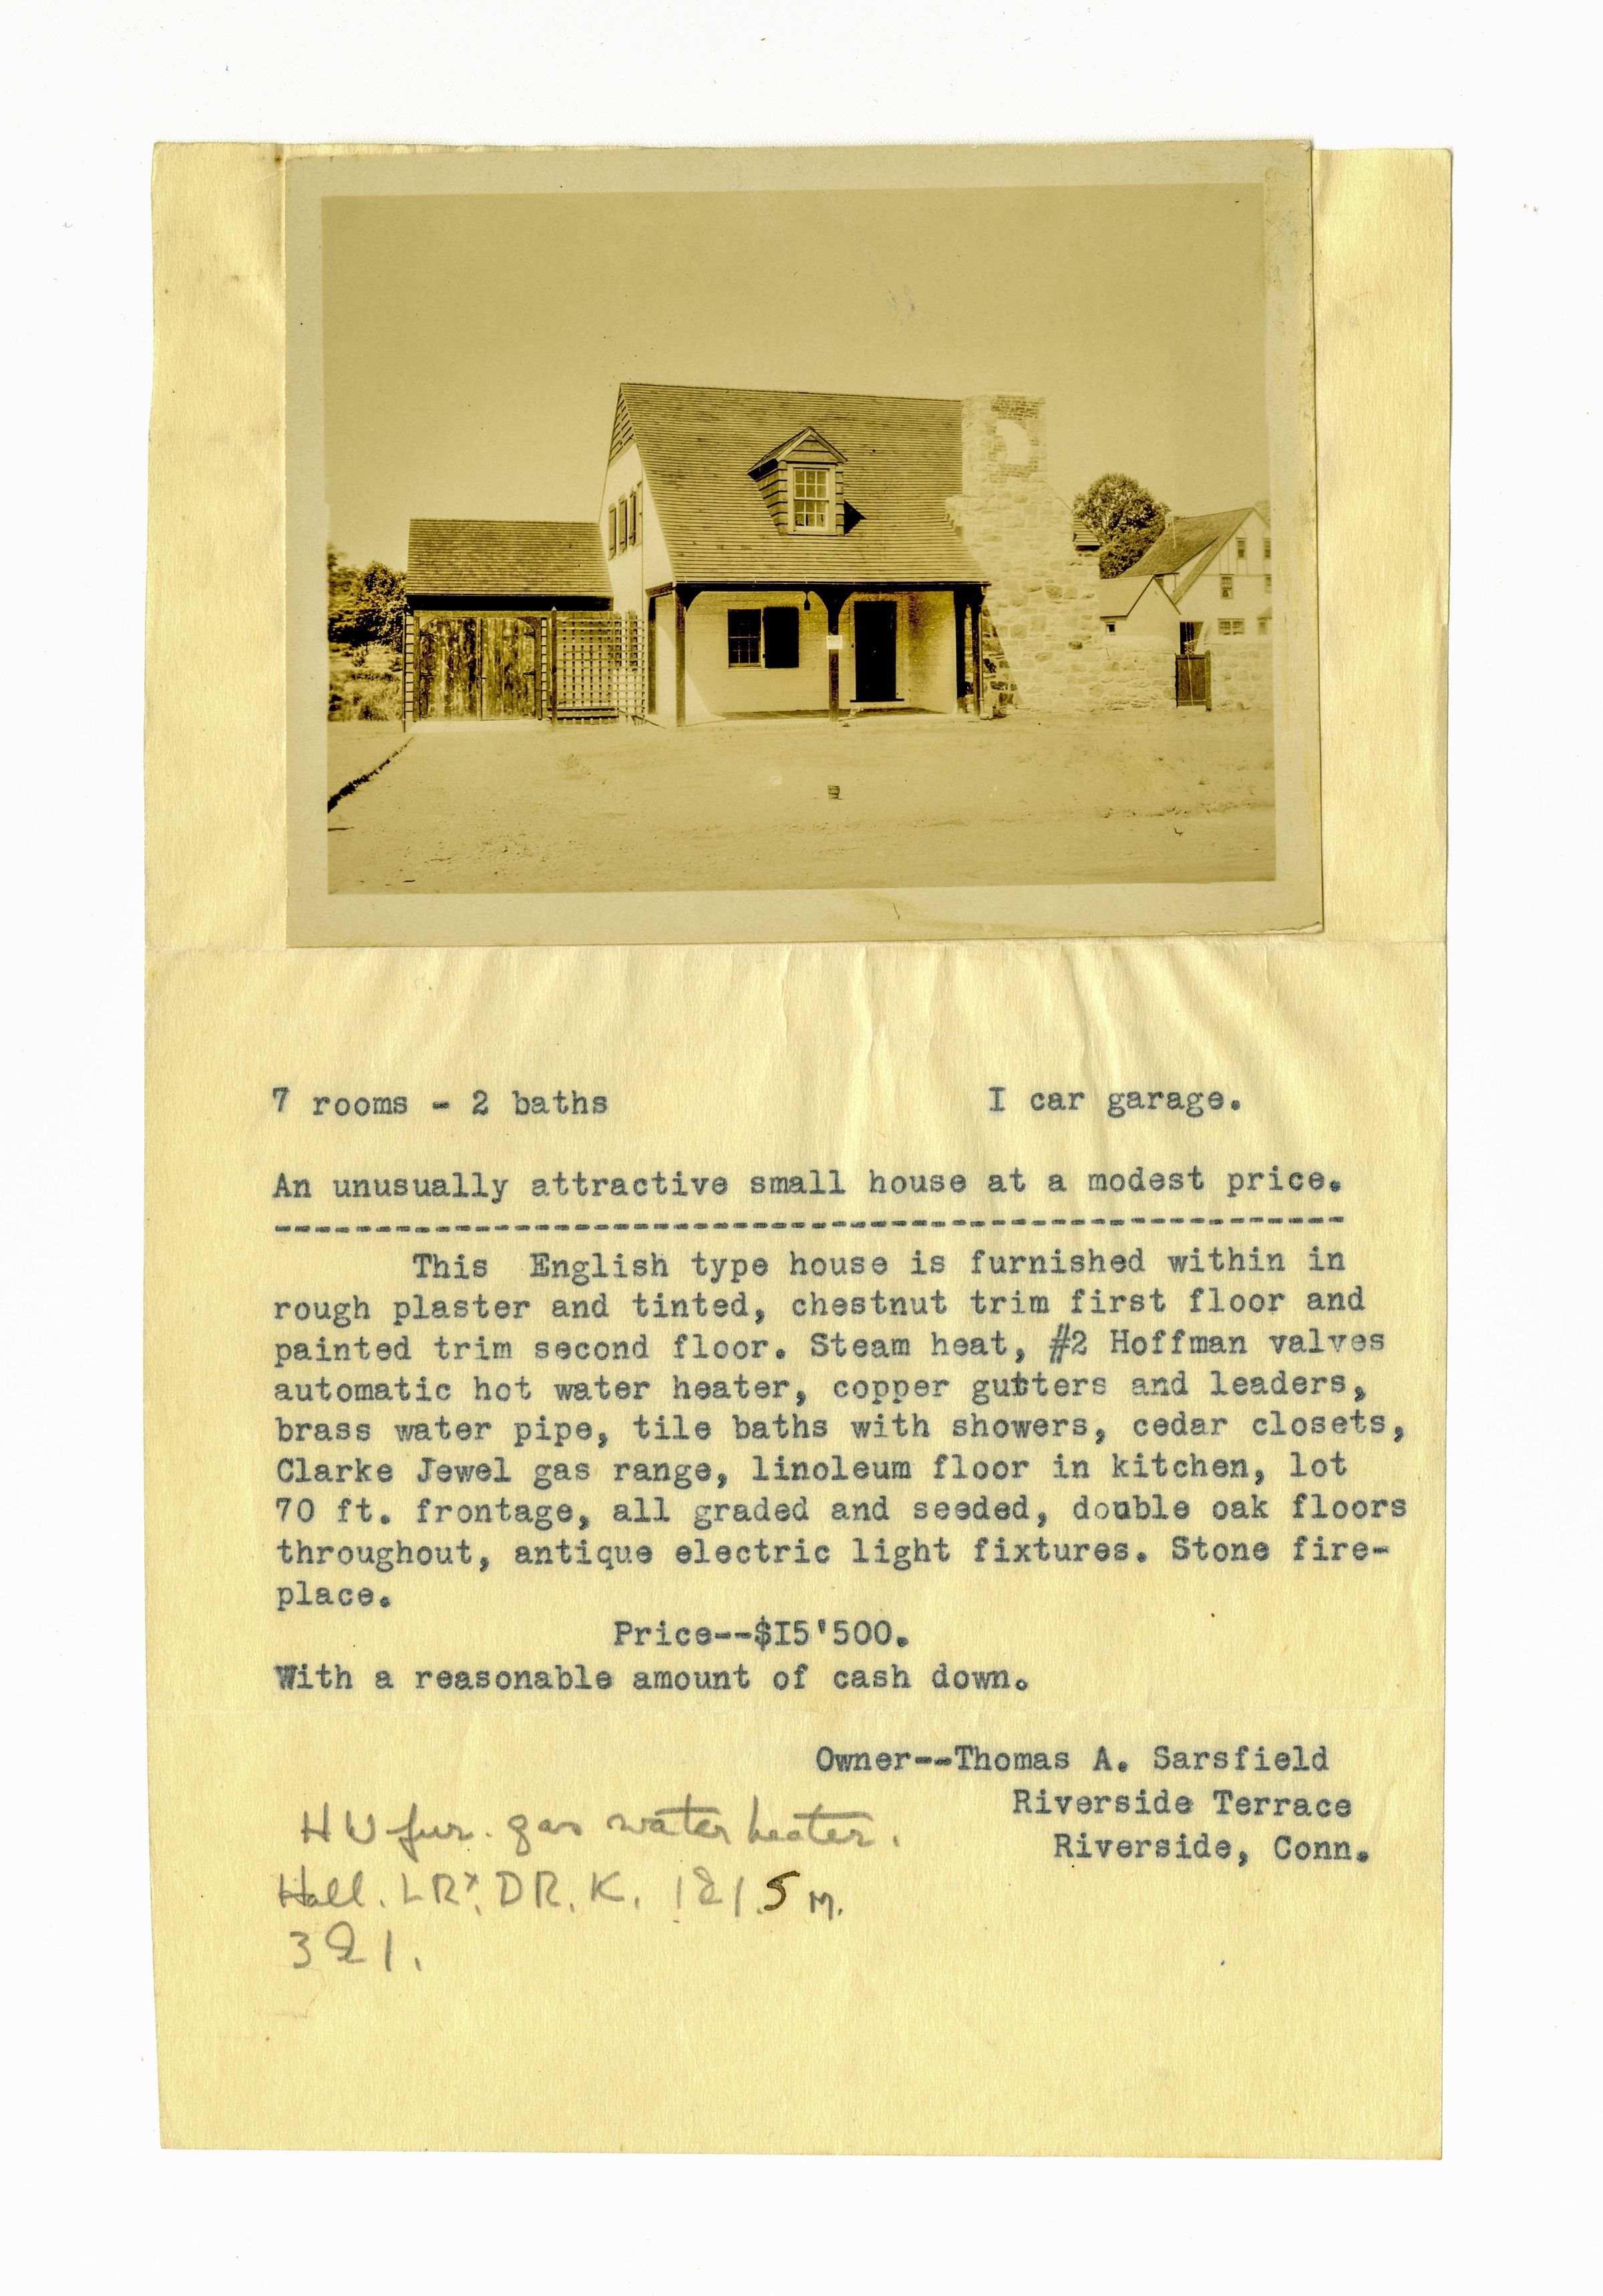 7 rooms - 2 baths I car garage.
An unusually attractive small house at a modest price.
------------------------------------------------------
This English type house is furnished within in
rough plaster and tinted, chestnut trim first floor and
painted trim second floor. Steam heat, #2 Hoffman valves
automatic hot water heater, copper gutters and leaders,
brass water pipe, tile baths with showers, cedar closets,
Clarke Jewel gas range, linoleum floor in kitchen, lot
70 ft. frontage, all graded and seeded, double oak floors
throughout, antique electric light fixtures. Stone fire-
place.
Price--$I5'500.
With a reasonable amount of cash down.
Owner--Thomas A. Sarsfield
Riverside Terrace
Riverside, Conn.
H W fur. gas water heater.
Hall. LRx, DR. K. 1&1. 5 M.
3 & 1.